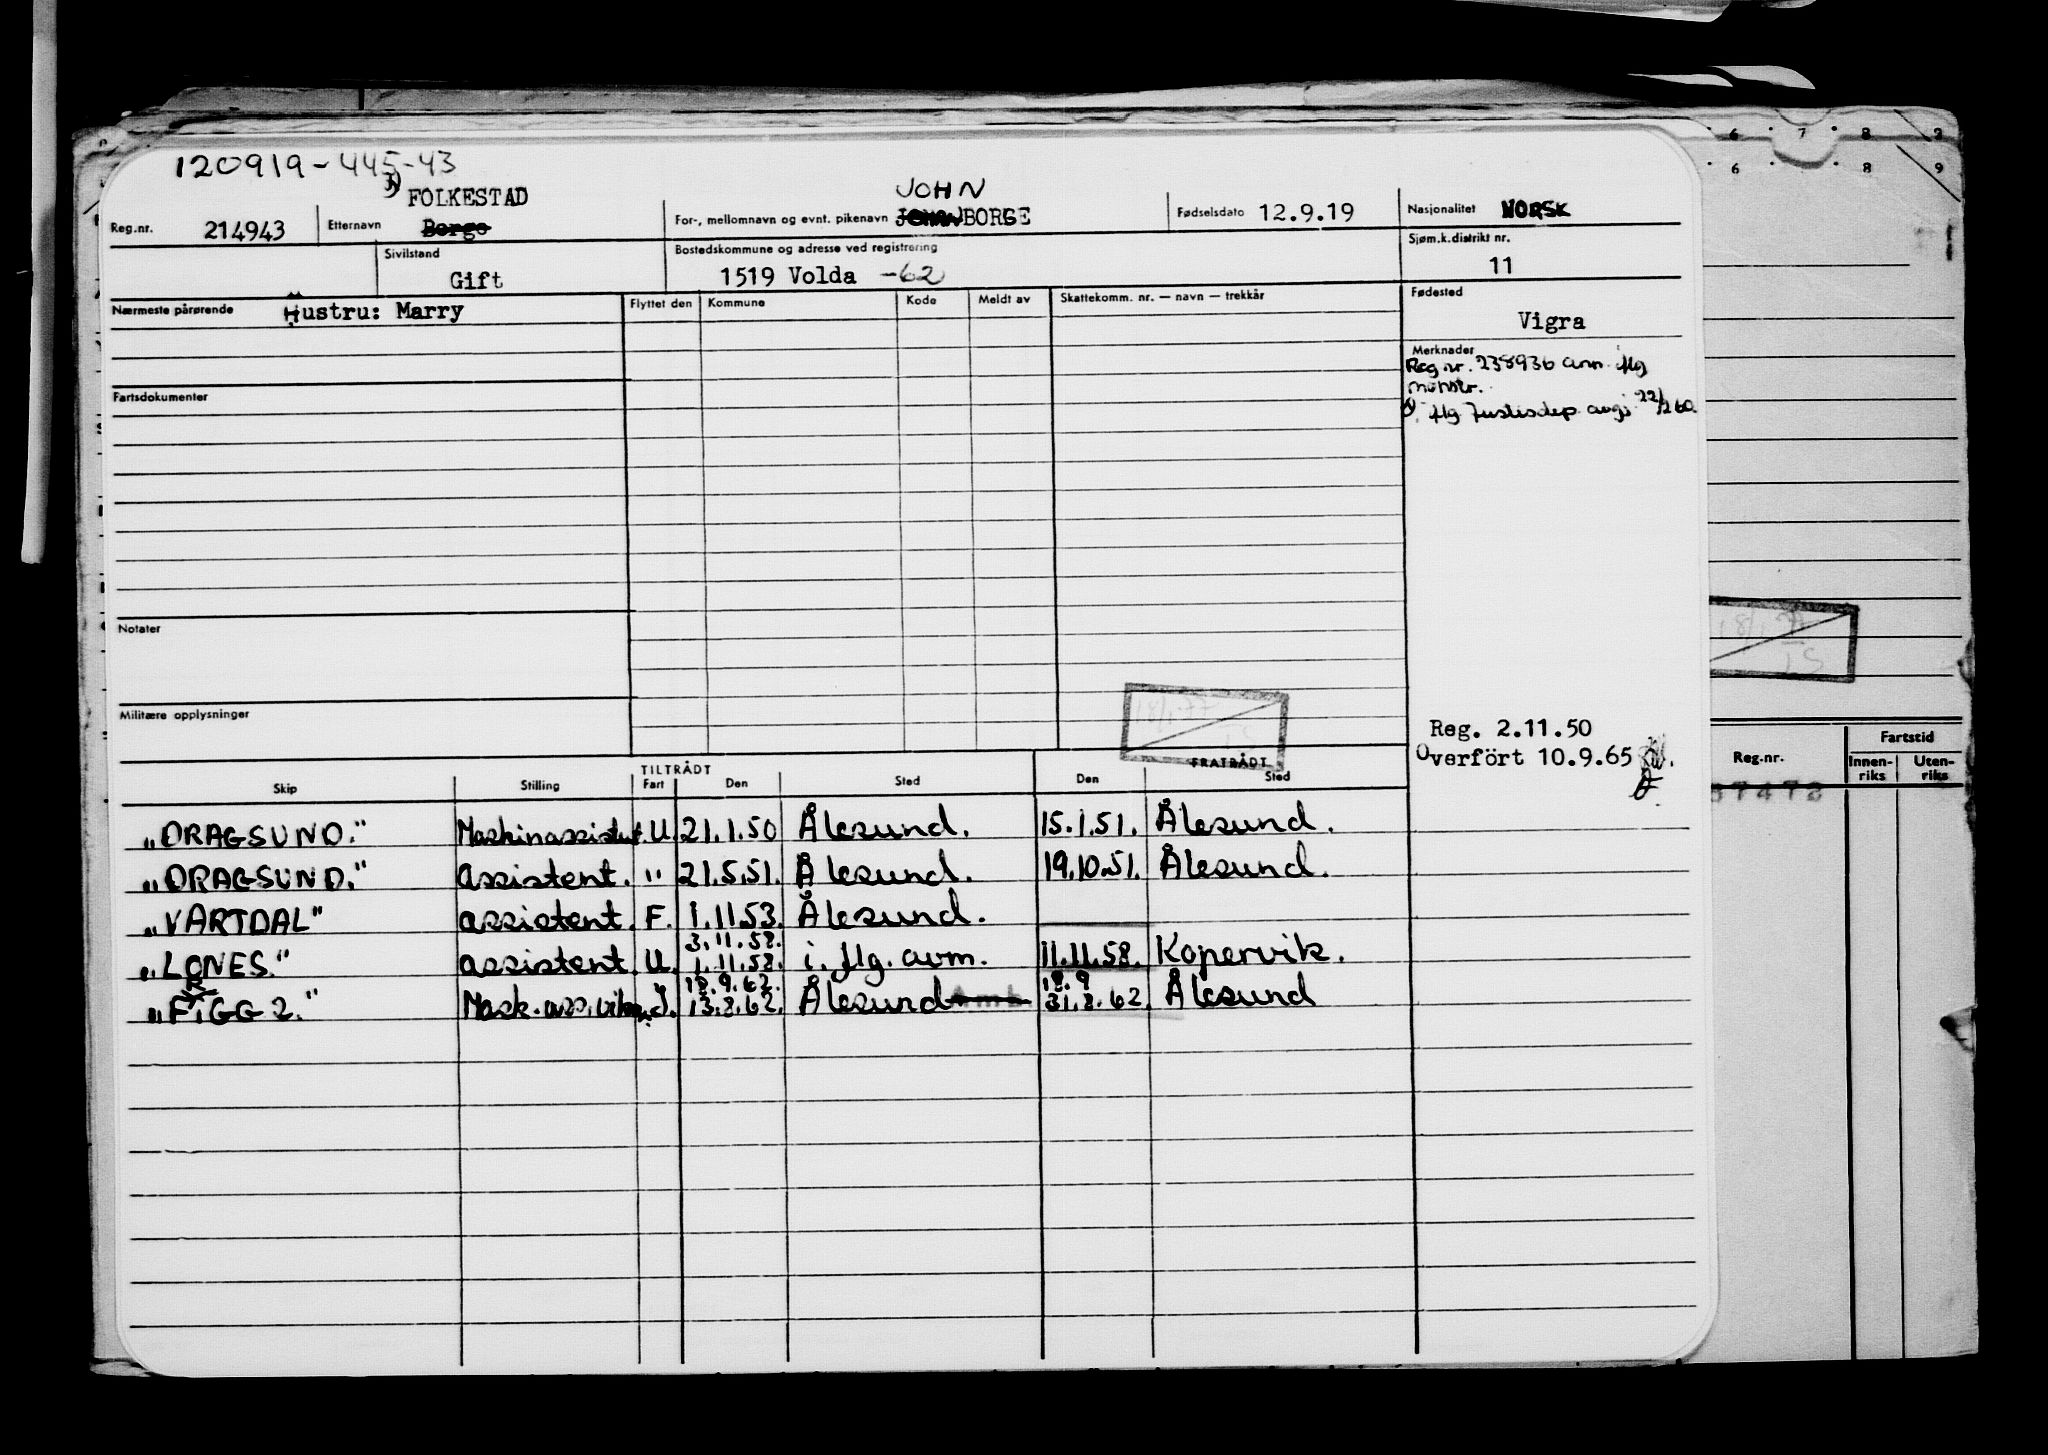 120919-445-43
FOLKESTAD JOHN
Reg.nr. 214943 Etternavn Borge For-, mellomnavn og evnt. pikenavn JOHAN BORGE Fødselsdato 12.9.19 Nasjonalitet NORSK
Sivilstand Gift Bostedskommune og adresse ved registrering 1519 Volda -62 Sjøm.k.distrikt nr. 11
Nærmeste pårørende Hustru: Marry Flyttet den Kommune Kode Meldt av Skattekomm. nr. — navn — trekkår Fødested Vigra
Merknader
Reg.nr. 238936 ann. iflg
mønstr.
iflg Justisdep. avgj. 22/2 60
Fartsdokumenter
Notater
Militære opplysninger
18/1-77
Reg. 2.11.50
Overført 10.9.65
TILTRÅDT FRATRÅDT
Skip Stilling Fart Den Sted Den Sted
"DRAGSUND." Maskinassistent U. 21.1.50 Ålesund. 15.1.51. Ålesund.
"DRAGSUND." assistent. " 21.5.51. Ålesund. 19.10.51. Ålesund.
"VARTDAL" assistent. F. 1.11.53. Ålesund.
3.11.58.
"LONES." assistent. U. 1.11.58. i. flg. anm. 11.11.58. Kopervik.
18.9.62. 18.9
13.8.62. Ålesund 31.8.62. Ålesund
6 7 8 9
6 8 9
Reg.nr. Fartstid
Innenriks Utenriks